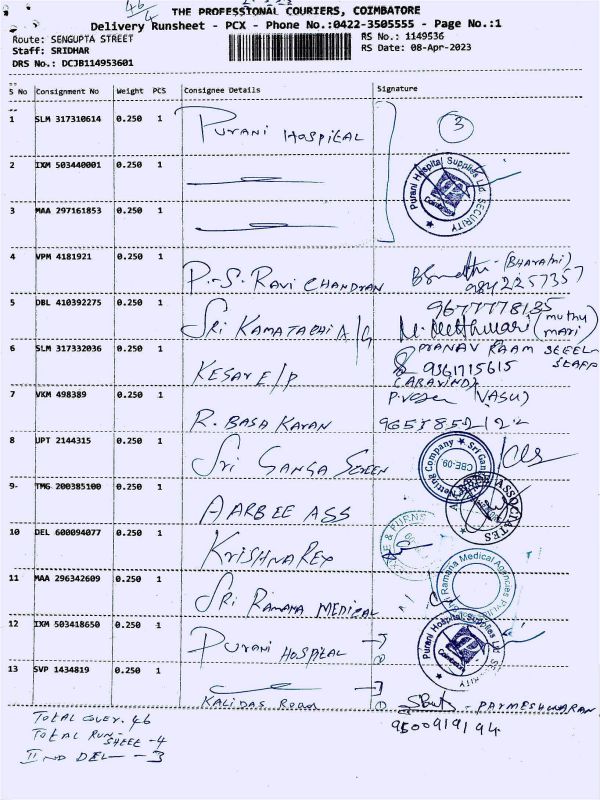 46/4
THE PROFESSIONAL COURIERS, COIMBATORE
Delivery Runsheet - PCX - Phone No.:0422-3505555 - Page No.:1
Route: SENGUPTA STREET
RS No.: 1149536
Staff: SRIDHAR
RS Date: 08-Apr-2023
DRS No.: DCJB114953601
S No Consignment No Weight PCS Consignee Details Signature
1 SLM 317310614 0.250 1 Purani Hospital 3
2 IXM 503440001 0.250 1
Purani Hospital Supplies Ltd. SECURITY
3 MAA 297161853 0.250 1
4 VPM 4181921 0.250 1 P.S. Ravi Chandran (Bharathi)
9842257357
5 DBL 410392275 0.250 1 Sri Kamatabhi A/G 9677778135
(muthu mari)
6 SLM 317332036 0.250 1 Kesav E/P PRANAV RAAM STEEL STAFF
9361715615
(ARAVIND)
7 VKM 498389 0.250 1 R. Basa Karan (VASU)
9658852122
8 UPT 2144315 0.250 1 Sri Ganga Screen
Netting Company Sri Gan CBE-09
9 TMG 200385100 0.250 1 AARBEE ASS
ASSOCIATES
10 DEL 600094077 0.250 1 Krishna Rex
11 MAA 296342609 0.250 1 Sri Ramana Medical
Sri Ramana Medical Agencies
12 IXM 503418650 0.250 1 Purani Hospital
Purani Hospital Supplies Ltd. SECURITY
13 SVP 1434819 0.250 1 Kalidas Room PARMESHWARAN
9500919194
Total Over. 46
Total Run-Sheet - 4
II nd Del - 3